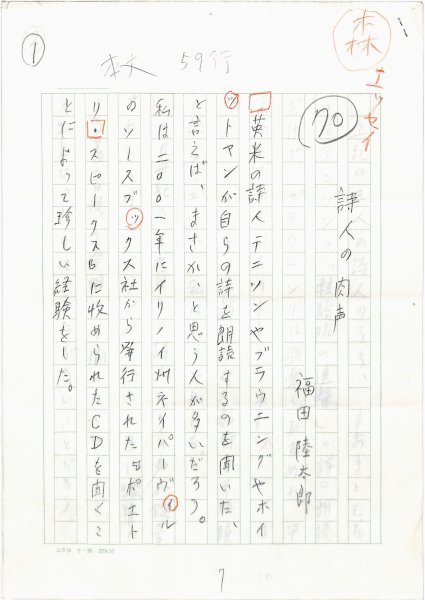 ①
本文 59行
森
エッセイ
70
詩人の肉声
福田陸太郎
英米の詩人テニソンやブラウニングやホイ
ットマンが自らの詩を朗読するのを聞いた、
と言えば、まさか、と思う人が多いだろう。
私は二〇〇一年にイリノイ州ネイパーヴィル
のソースブックス社から発行された『ポエト
リ・スピークス』に収められたCDを聞くこ
とによって珍しい経験をした。
コクヨ ケ-30 20×10
7